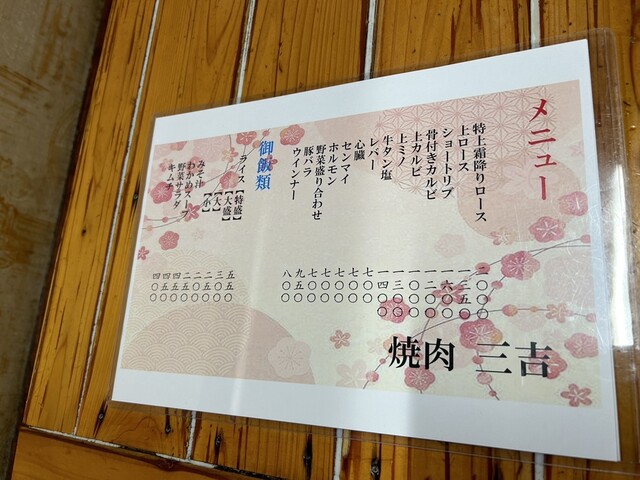 メニュー
特上霜降りロース 二〇〇〇
上ロース 一三五〇
ショートリブ 一六〇〇
骨付きカルビ 一二〇〇
上カルビ 一〇〇〇
上ミノ 一三〇〇
牛タン塩 一四〇〇
レバー 七〇〇
心臓 七〇〇
センマイ 七〇〇
ホルモン 七〇〇
野菜盛り合わせ 七〇〇
豚バラ 九五〇
ウインナー 八〇〇
御飯類
ライス【特盛】
【大盛】
【大】
【小】
みそ汁
わかめスープ
野菜サラダ
キムチ
焼肉 三吉